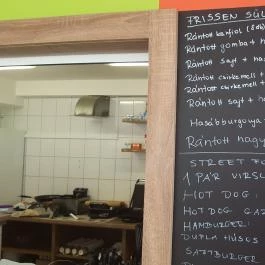 FRISSEN SÜL
Rántott karfiol (8db
Rántott gomba + h
Rántott sajt + ha
Rántott csirkemell +
Rántott csirkemell +
Rántott sajt + h
Hasábburgonya
Rántott nagy
STREET FO
1 PÁR VIRSL
HOT DOG:
HOT DOG GA
HAMBURGER:
DUPLA HÚSOS
SAJTBURGER